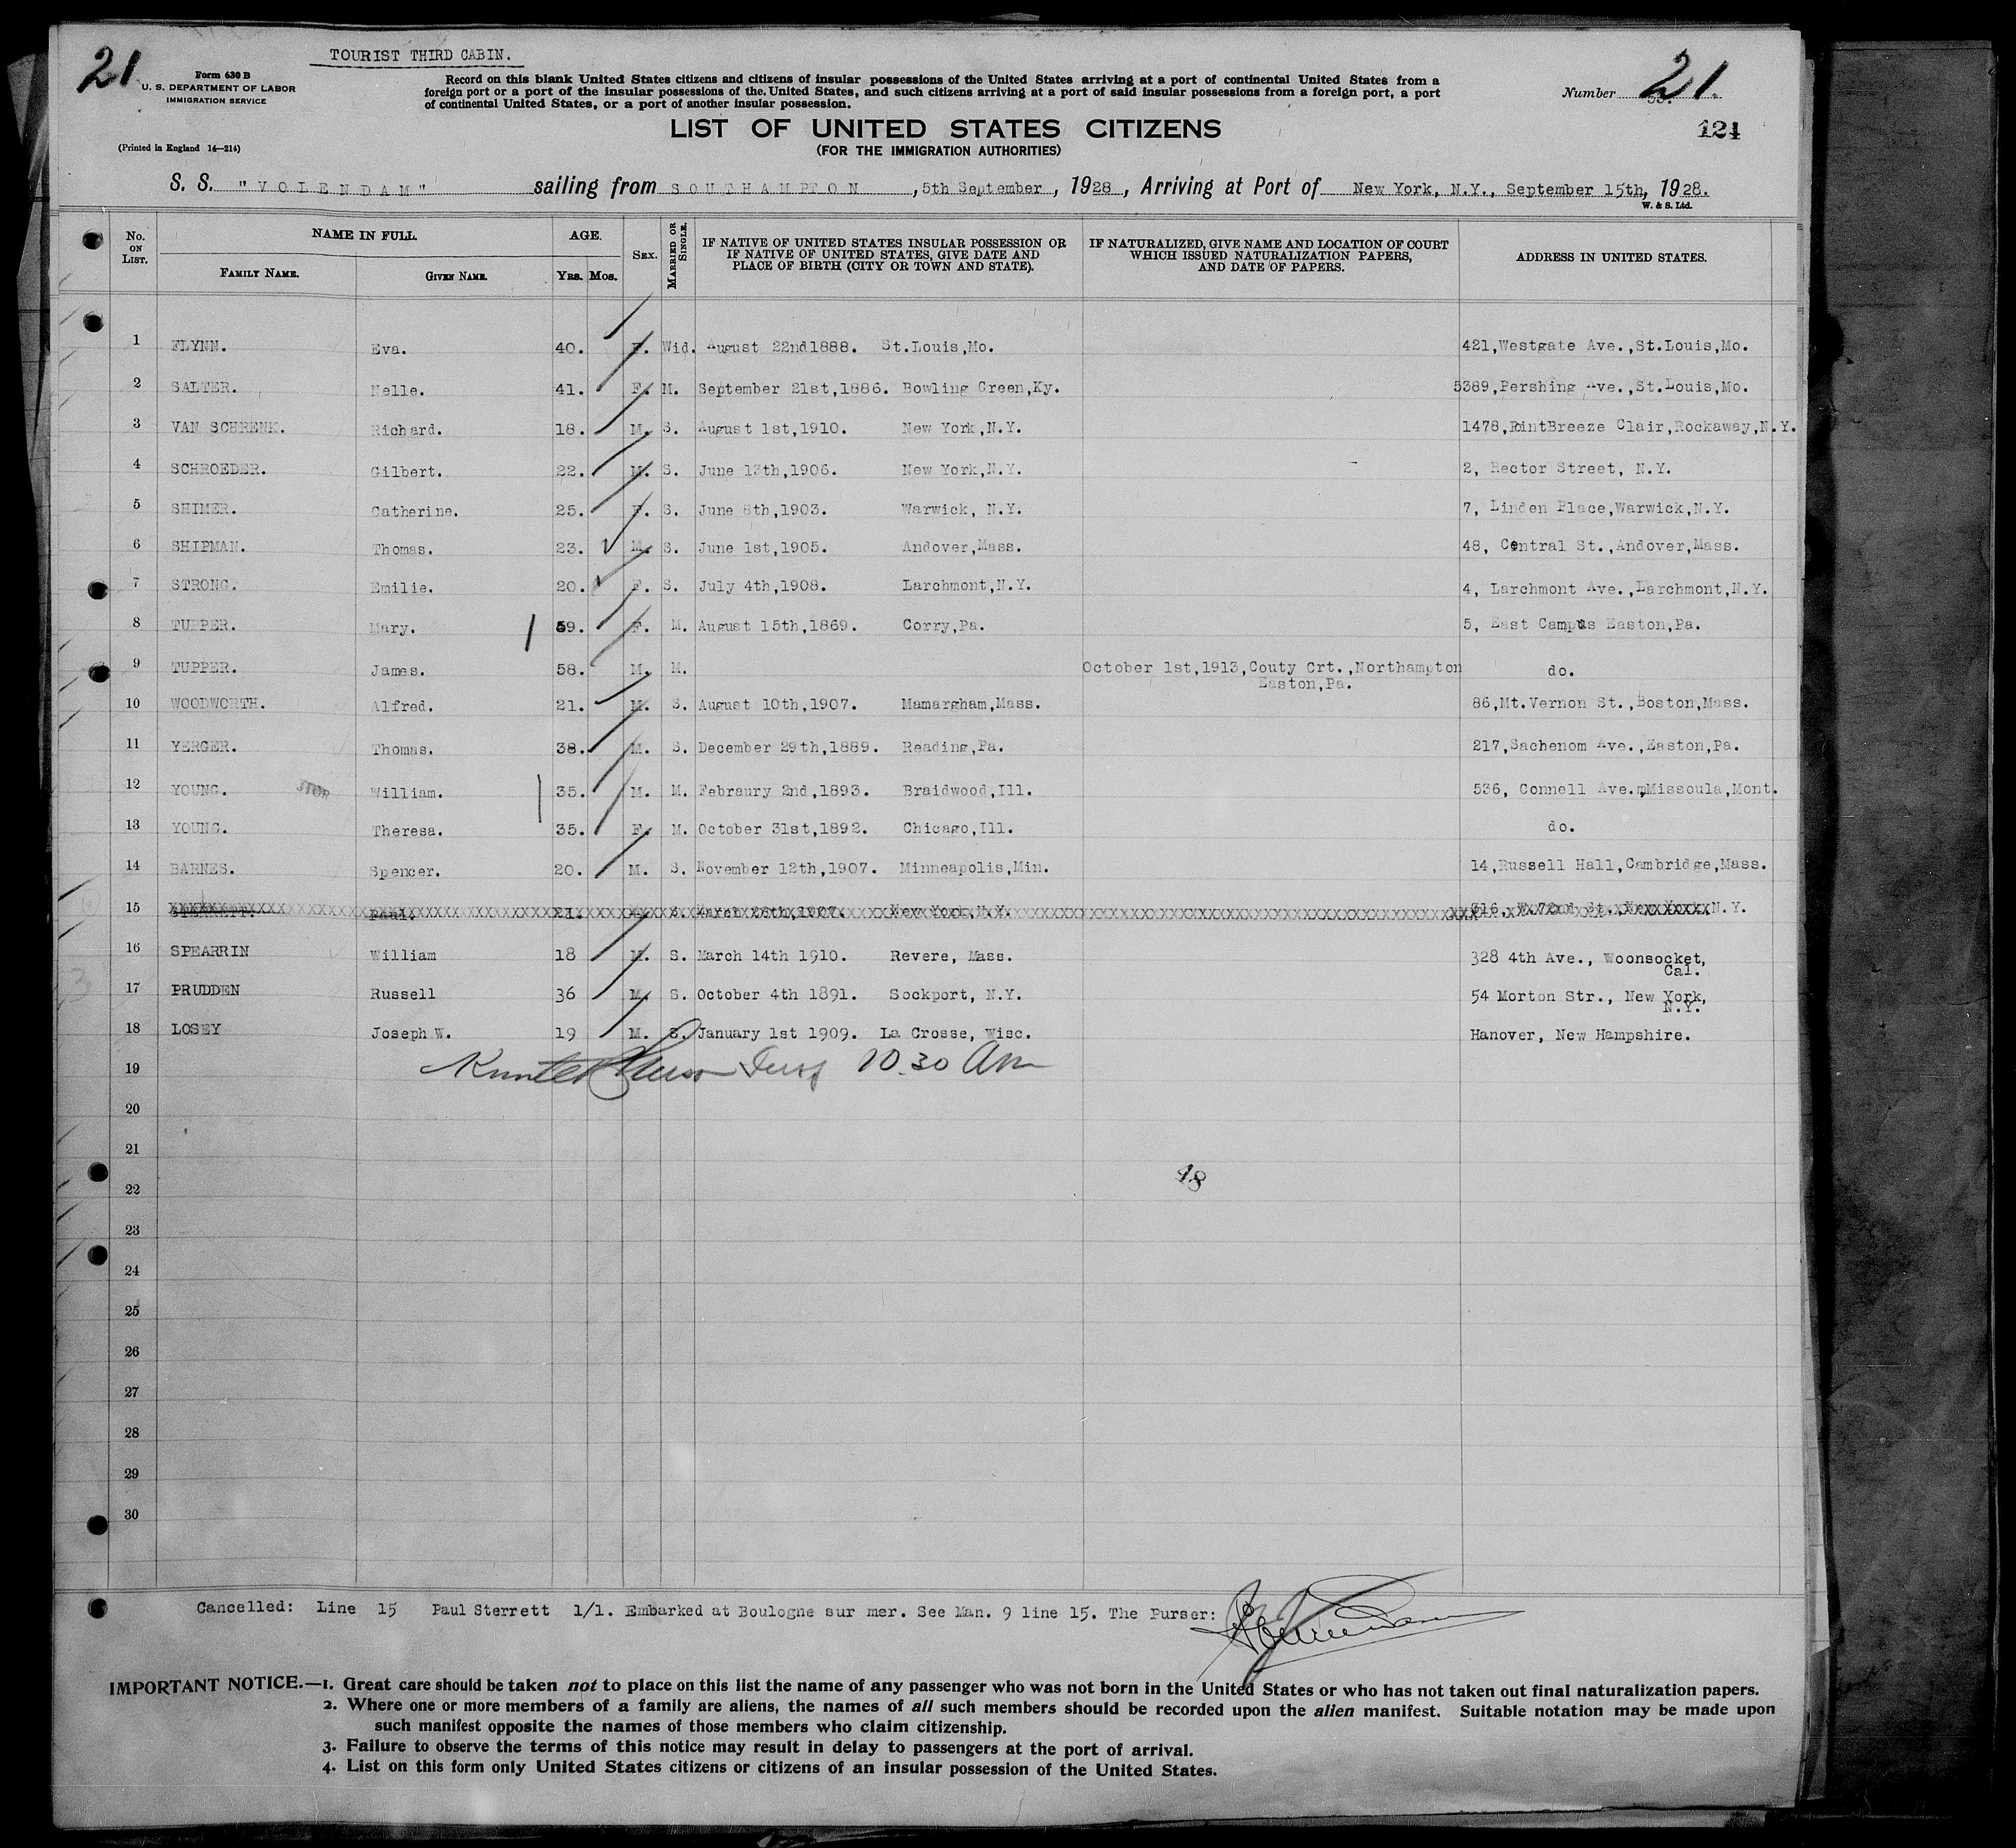 21
TOURIST THIRD CABIN.
Form 630 B
U. S. DEPARTMENT OF LABOR
IMMIGRATION SERVICE
(Printed in England 14—214)
Record on this blank United States citizens and citizens of insular possessions of the United States arriving at a port of continental United States from a
foreign port or a port of the insular possessions of the United States, and such citizens arriving at a port of said insular possessions from a foreign port, a port
of continental United States, or a port of another insular possession.
Number 21.
124
LIST OF UNITED STATES CITIZENS
(FOR THE IMMIGRATION AUTHORITIES)
S. S. "VOLENDAM" sailing from SOUTHAMPTON, 5th September, 1928, Arriving at Port of New York, N.Y., September 15th, 1928.
W. & S. Ltd.
No. ON LIST. NAME IN FULL. FAMILY NAME. GIVEN NAME. AGE. YRS. MOS. SEX. MARRIED OR SINGLE. IF NATIVE OF UNITED STATES INSULAR POSSESSION OR IF NATIVE OF UNITED STATES, GIVE DATE AND PLACE OF BIRTH (CITY OR TOWN AND STATE). IF NATURALIZED, GIVE NAME AND LOCATION OF COURT WHICH ISSUED NATURALIZATION PAPERS, AND DATE OF PAPERS. ADDRESS IN UNITED STATES.
1 FLYNN. Eva. 40. F. Wid. August 22nd1888. St.Louis,Mo. 421,Westgate Ave.,St.Louis,Mo.
2 SALTER. Nelle. 41. F. M. September 21st,1886. Bowling Green,Ky. 5389,Pershing Ave.,St.Louis,Mo.
3 VAN SCHRENK. Richard. 18. M. S. August 1st,1910. New York,N.Y. 1478,PointBreeze Clair,Rockaway,N.Y.
4 SCHROEDER. Gilbert. 22. M. S. June 13th,1906. New York,N.Y. 2, Rector Street, N.Y.
5 SHIMER. Catherine. 25. F. S. June 8th,1903. Warwick, N.Y. 7, Linden Place,Warwick,N.Y.
6 SHIPMAN. Thomas. 23. M. S. June 1st,1905. Andover,Mass. 48, Central St.,Andover,Mass.
7 STRONG. Emilie. 20. F. S. July 4th,1908. Larchmont,N.Y. 4, Larchmont Ave.,Larchmont,N.Y.
8 TUPPER. Mary. 59. F. M. August 15th,1869. Corry,Pa. 5, East Campus Easton,Pa.
9 TUPPER. James. 58. M. M. October 1st,1913,Couty Crt.,Northampton do.
Easton,Pa.
10 WOODWORTH. Alfred. 21. M. S. August 10th,1907. Mamargham,Mass. 86,Mt.Vernon St.,Boston,Mass.
11 YERGER. Thomas. 38. M. S. December 29th,1889. Reading,Pa. 217,Sachenom Ave.,Easton,Pa.
12 YOUNG. William. 35. M. M. Febraury 2nd,1893. Braidwood,Ill. 536, Connell Ave.,Missoula,Mont.
13 YOUNG. Theresa. 35. F. M. October 31st,1892. Chicago,Ill. do.
14 BARNES. Spencer. 20. M. S. November 12th,1907. Minneapolis,Min. 14,Russell Hall,Cambridge,Mass.
15 STERRETT. Paul. 21. M. S. March 26th,1907. New York,N.Y. 316, W.72nd St., New York N.Y.
16 SPEARRIN William 18 M. S. March 14th 1910. Revere, Mass. 328 4th Ave., Woonsocket,
Cal.
17 PRUDDEN Russell 36 M. S. October 4th 1891. Sockport, N.Y. 54 Morton Str., New York,
N.Y.
18 LOSEY Joseph W. 19 M. S. January 1st 1909. La Crosse, Wisc. Hanover, New Hampshire.
19
10.30 Am
20
21
22
48
23
24
25
26
27
28
29
30
Cancelled: Line 15 Paul Sterrett 1/1. Embarked at Boulogne sur mer. See Man. 9 line 15. The Purser:
IMPORTANT NOTICE.—1. Great care should be taken not to place on this list the name of any passenger who was not born in the United States or who has not taken out final naturalization papers.
2. Where one or more members of a family are aliens, the names of all such members should be recorded upon the alien manifest. Suitable notation may be made upon
such manifest opposite the names of those members who claim citizenship.
3. Failure to observe the terms of this notice may result in delay to passengers at the port of arrival.
4. List on this form only United States citizens or citizens of an insular possession of the United States.